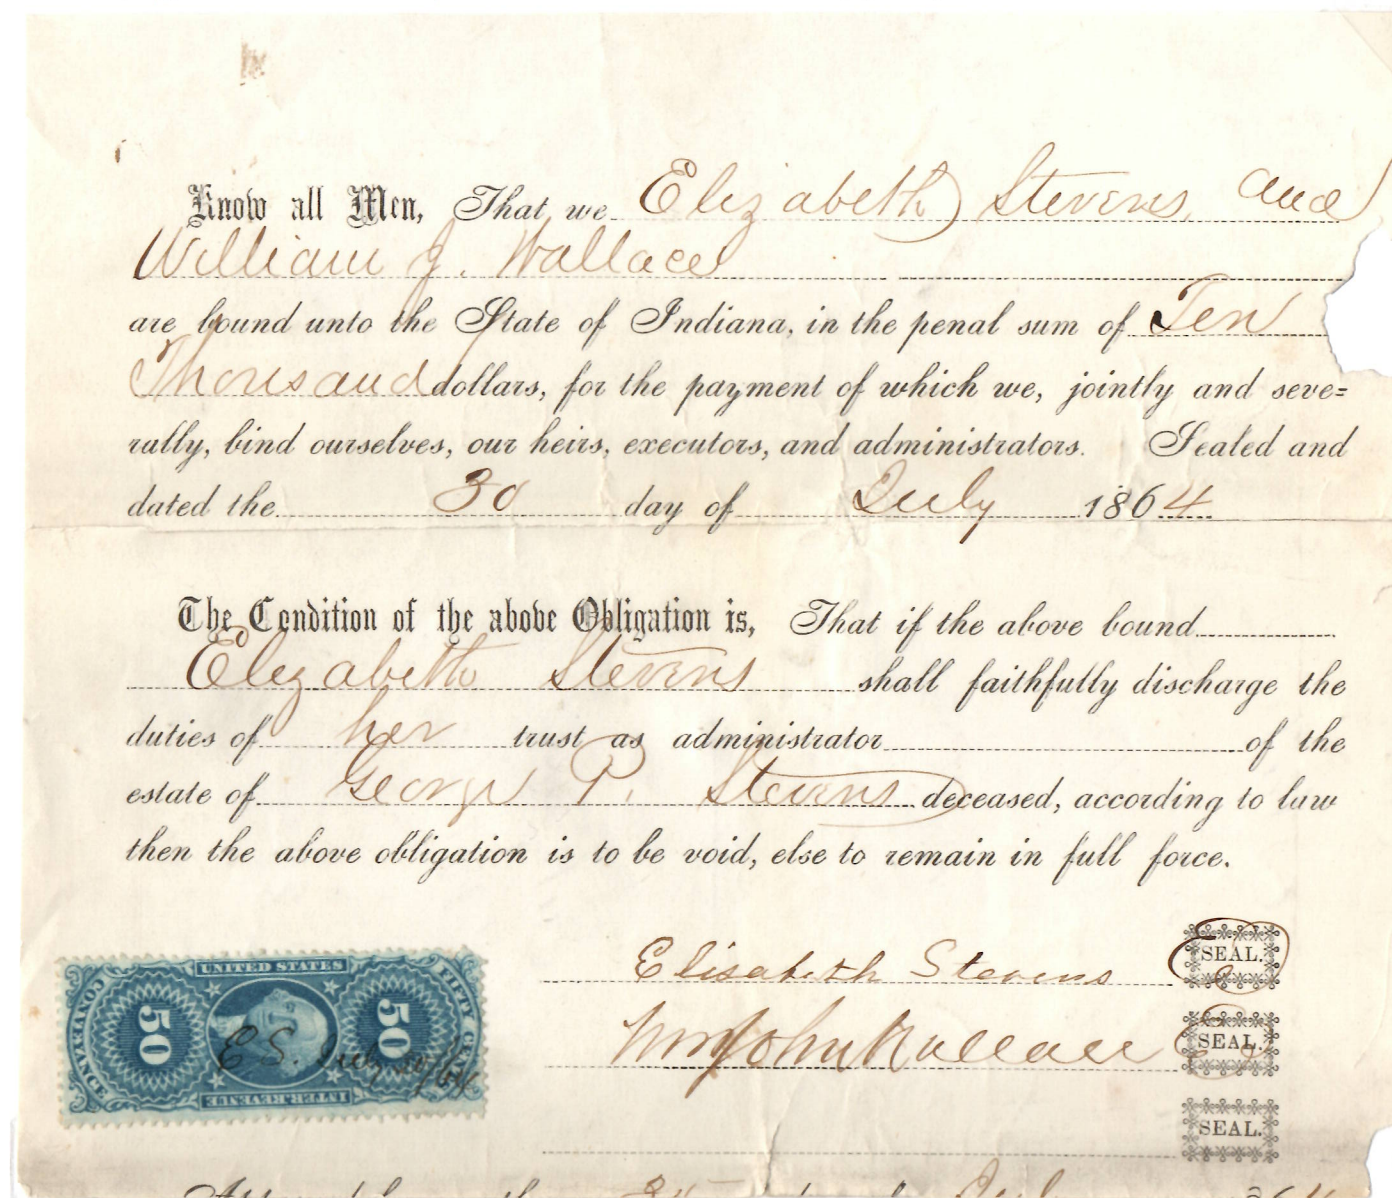 Know all Men, That we Elizabeth Stevens and
William J. Wallace
are bound unto the State of Indiana, in the penal sum of Ten
Thousand dollars, for the payment of which we, jointly and seve=
rally, bind ourselves, our heirs, executors, and administrators. Sealed and
dated the 30 day of July 1864
The Condition of the above Obligation is, That if the above bound
Elizabeth Stevens shall faithfully discharge the
duties of her trust as administrator of the
estate of George P. Stevens deceased, according to law
then the above obligation is to be void, else to remain in full force.
Elisabeth Stevens SEAL.
Wm John Wallace SEAL.
SEAL.
UNITED STATES
CONVEYANCE
50
50
FIFTY CENTS
INTER. REVENUE
E S. July